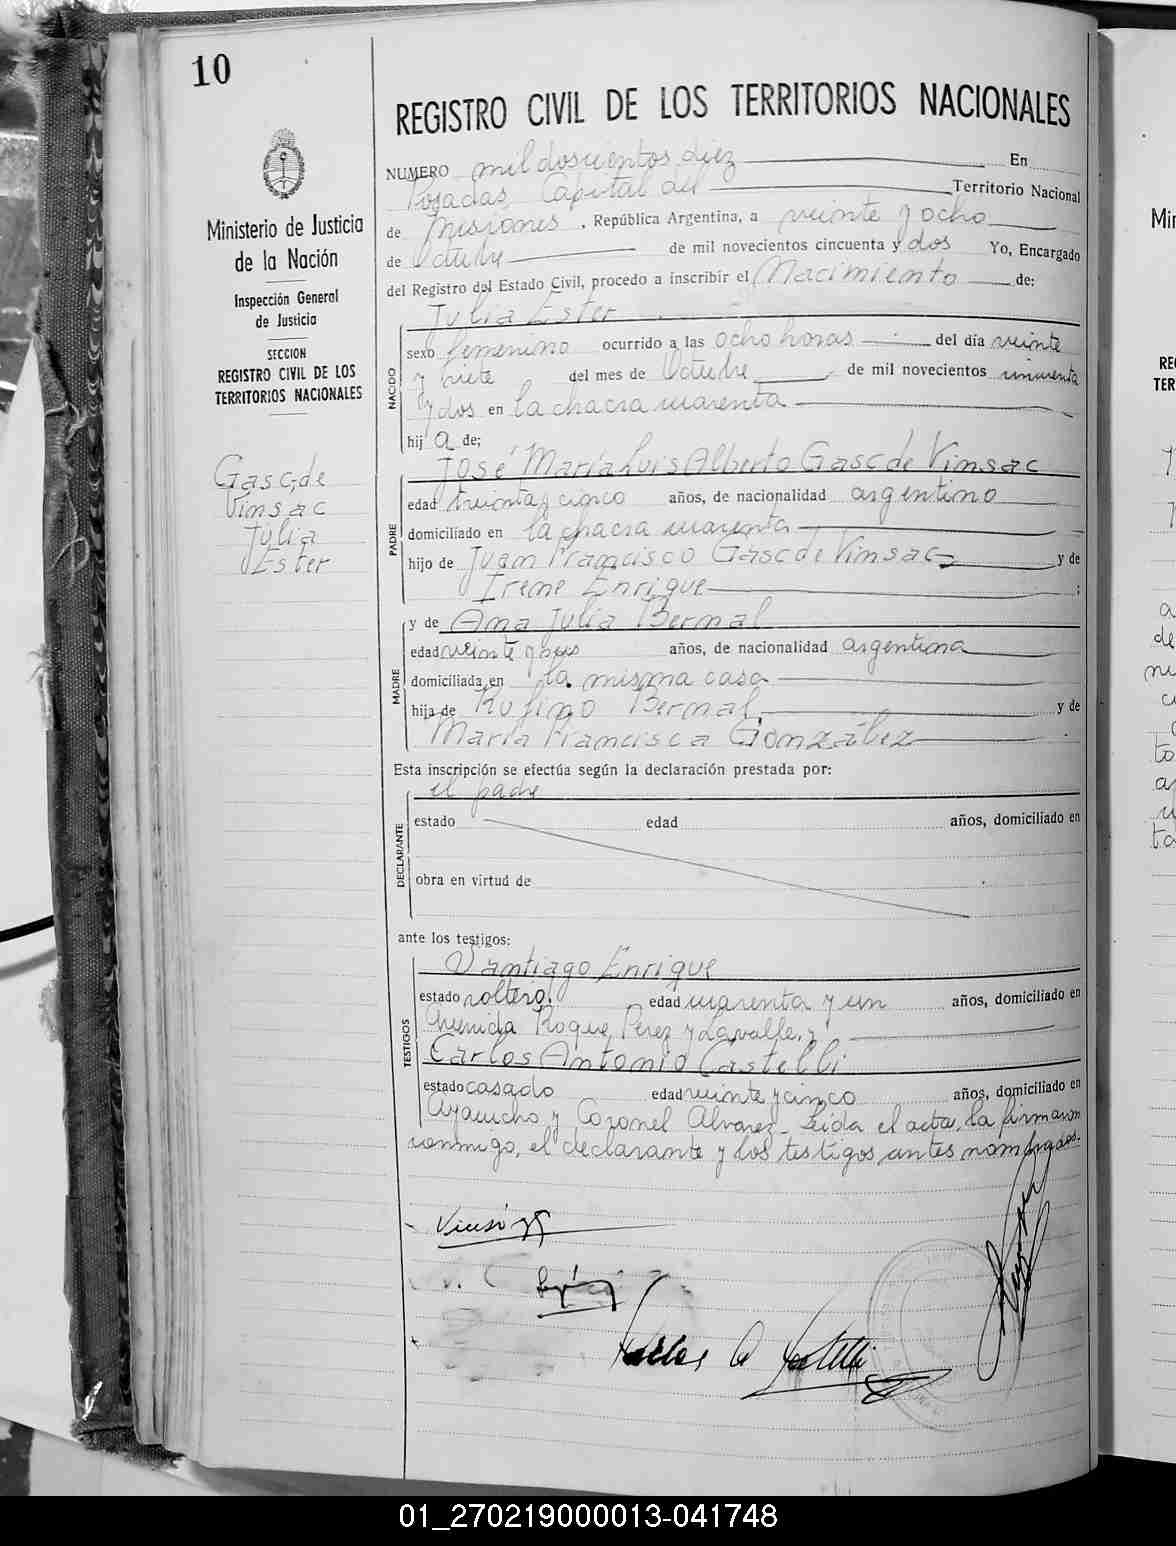 10
REGISTRO CIVIL DE LOS TERRITORIOS NACIONALES
Ministerio de Justicia
de la Nación
Inspección General
de Justicia
SECCION
REGISTRO CIVIL DE LOS
TERRITORIOS NACIONALES
Gasc de
Vinsac
Julia
Ester
NUMERO mil doscientos diez En
Posadas, Capital del Territorio Nacional
de Misiones, República Argentina, a veinte y ocho
de Octubre de mil novecientos cincuenta y dos Yo, Encargado
del Registro del Estado Civil, procedo a inscribir el Nacimiento de:
Julia Ester
NACIDO
sexo femenino ocurrido a las ocho horas del día veinte
y siete del mes de Octubre de mil novecientos cincuenta
y dos en la chacra cuarenta
hij a de;
José María Luis Alberto Gasc de Vinsac
PADRE
edad treinta y cinco años, de nacionalidad argentino
domiciliado en la chacra cuarenta
hijo de Juan Francisco Gasc de Vinsac y de
Irene Enrique ;
MADRE
y de Ana Julia Bernal
edad veinte y seis años, de nacionalidad argentina
domiciliada en la misma casa
hija de Rufino Bernal, y de
María Francisca González .
Esta inscripción se efectúa según la declaración prestada por:
el padre
DECLARANTE
estado edad años, domiciliado en
obra en virtud de
ante los testigos:
Santiago Enrique
TESTIGOS
estado soltero, edad cuarenta y un años, domiciliado en
Avenida Roque Perez y Lavalle, y
Carlos Antonio Castelli
estado casado edad veinte y cinco años, domiciliado en
Ayacucho y Coronel Alvarez. Leida el acta, la firmaron
conmigo, el declarante y los testigos antes nombrados.
Carlos A Castelli
01_270219000013-041748